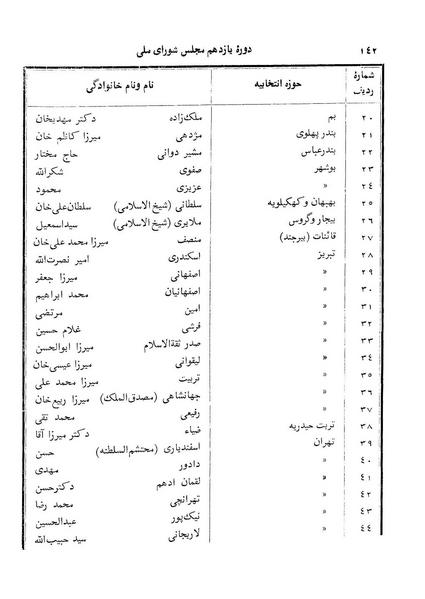 ۱٤۲ دورهٔ یازدهم مجلس شورای ملی
شمارهٔ ردیف حوزه انتخابیه نام ونام خانوادگی
۲۰ بم ملك‌زاده دکتر مهدیخان
۲۱ بندر پهلوی مژدهی میرزا کاظم خان
۲۲ بندرعباس مشیر دوانی حاج مختار
۲۳ بوشهر صفوی شکرالله
۲٤ » عزیزی محمود
۲٥ بهبهان و کهکیلویه سلطانی (شیخ الاسلامی) سلطان‌علی‌خان
۲٦ بیجار وگروس ملایری (شیخ الاسلامی) سیداسمعیل
۲۷ قائنات (بیرجند) منصف میرزا محمد علی‌خان
۲۸ تبریز اسکندری امیر نصرت‌الله
۲۹ » اصفهانی میرزا جعفر
۳۰ » اصفهانیان محمد ابراهیم
۳۱ » امین مرتضی
۳۲ » قرشی غلام حسین
۳۳ » صدر ثقةالاسلام میرزا ابوالحسن
۳٤ » لیقوانی میرزا عیسی‌خان
۳٥ » تربیت میرزا محمد علی
۳٦ » جهانشاهی (مصدق‌الملك) میرزا ربیع‌خان
۳۷ » رفیعی محمد تقی
۳۸ تربت حیدریه ضیاء دکتر میرزا آقا
۳۹ تهران اسفندیاری (محتشم‌السلطنه) حسن
٤۰ » دادور مهدی
٤۱ » لقمان ادهم دکترحسن
٤۲ » تهرانچی محمد رضا
٤۳ » نیك‌پور عبدالحسین
٤٤ » لاریجانی سید حبیب‌الله